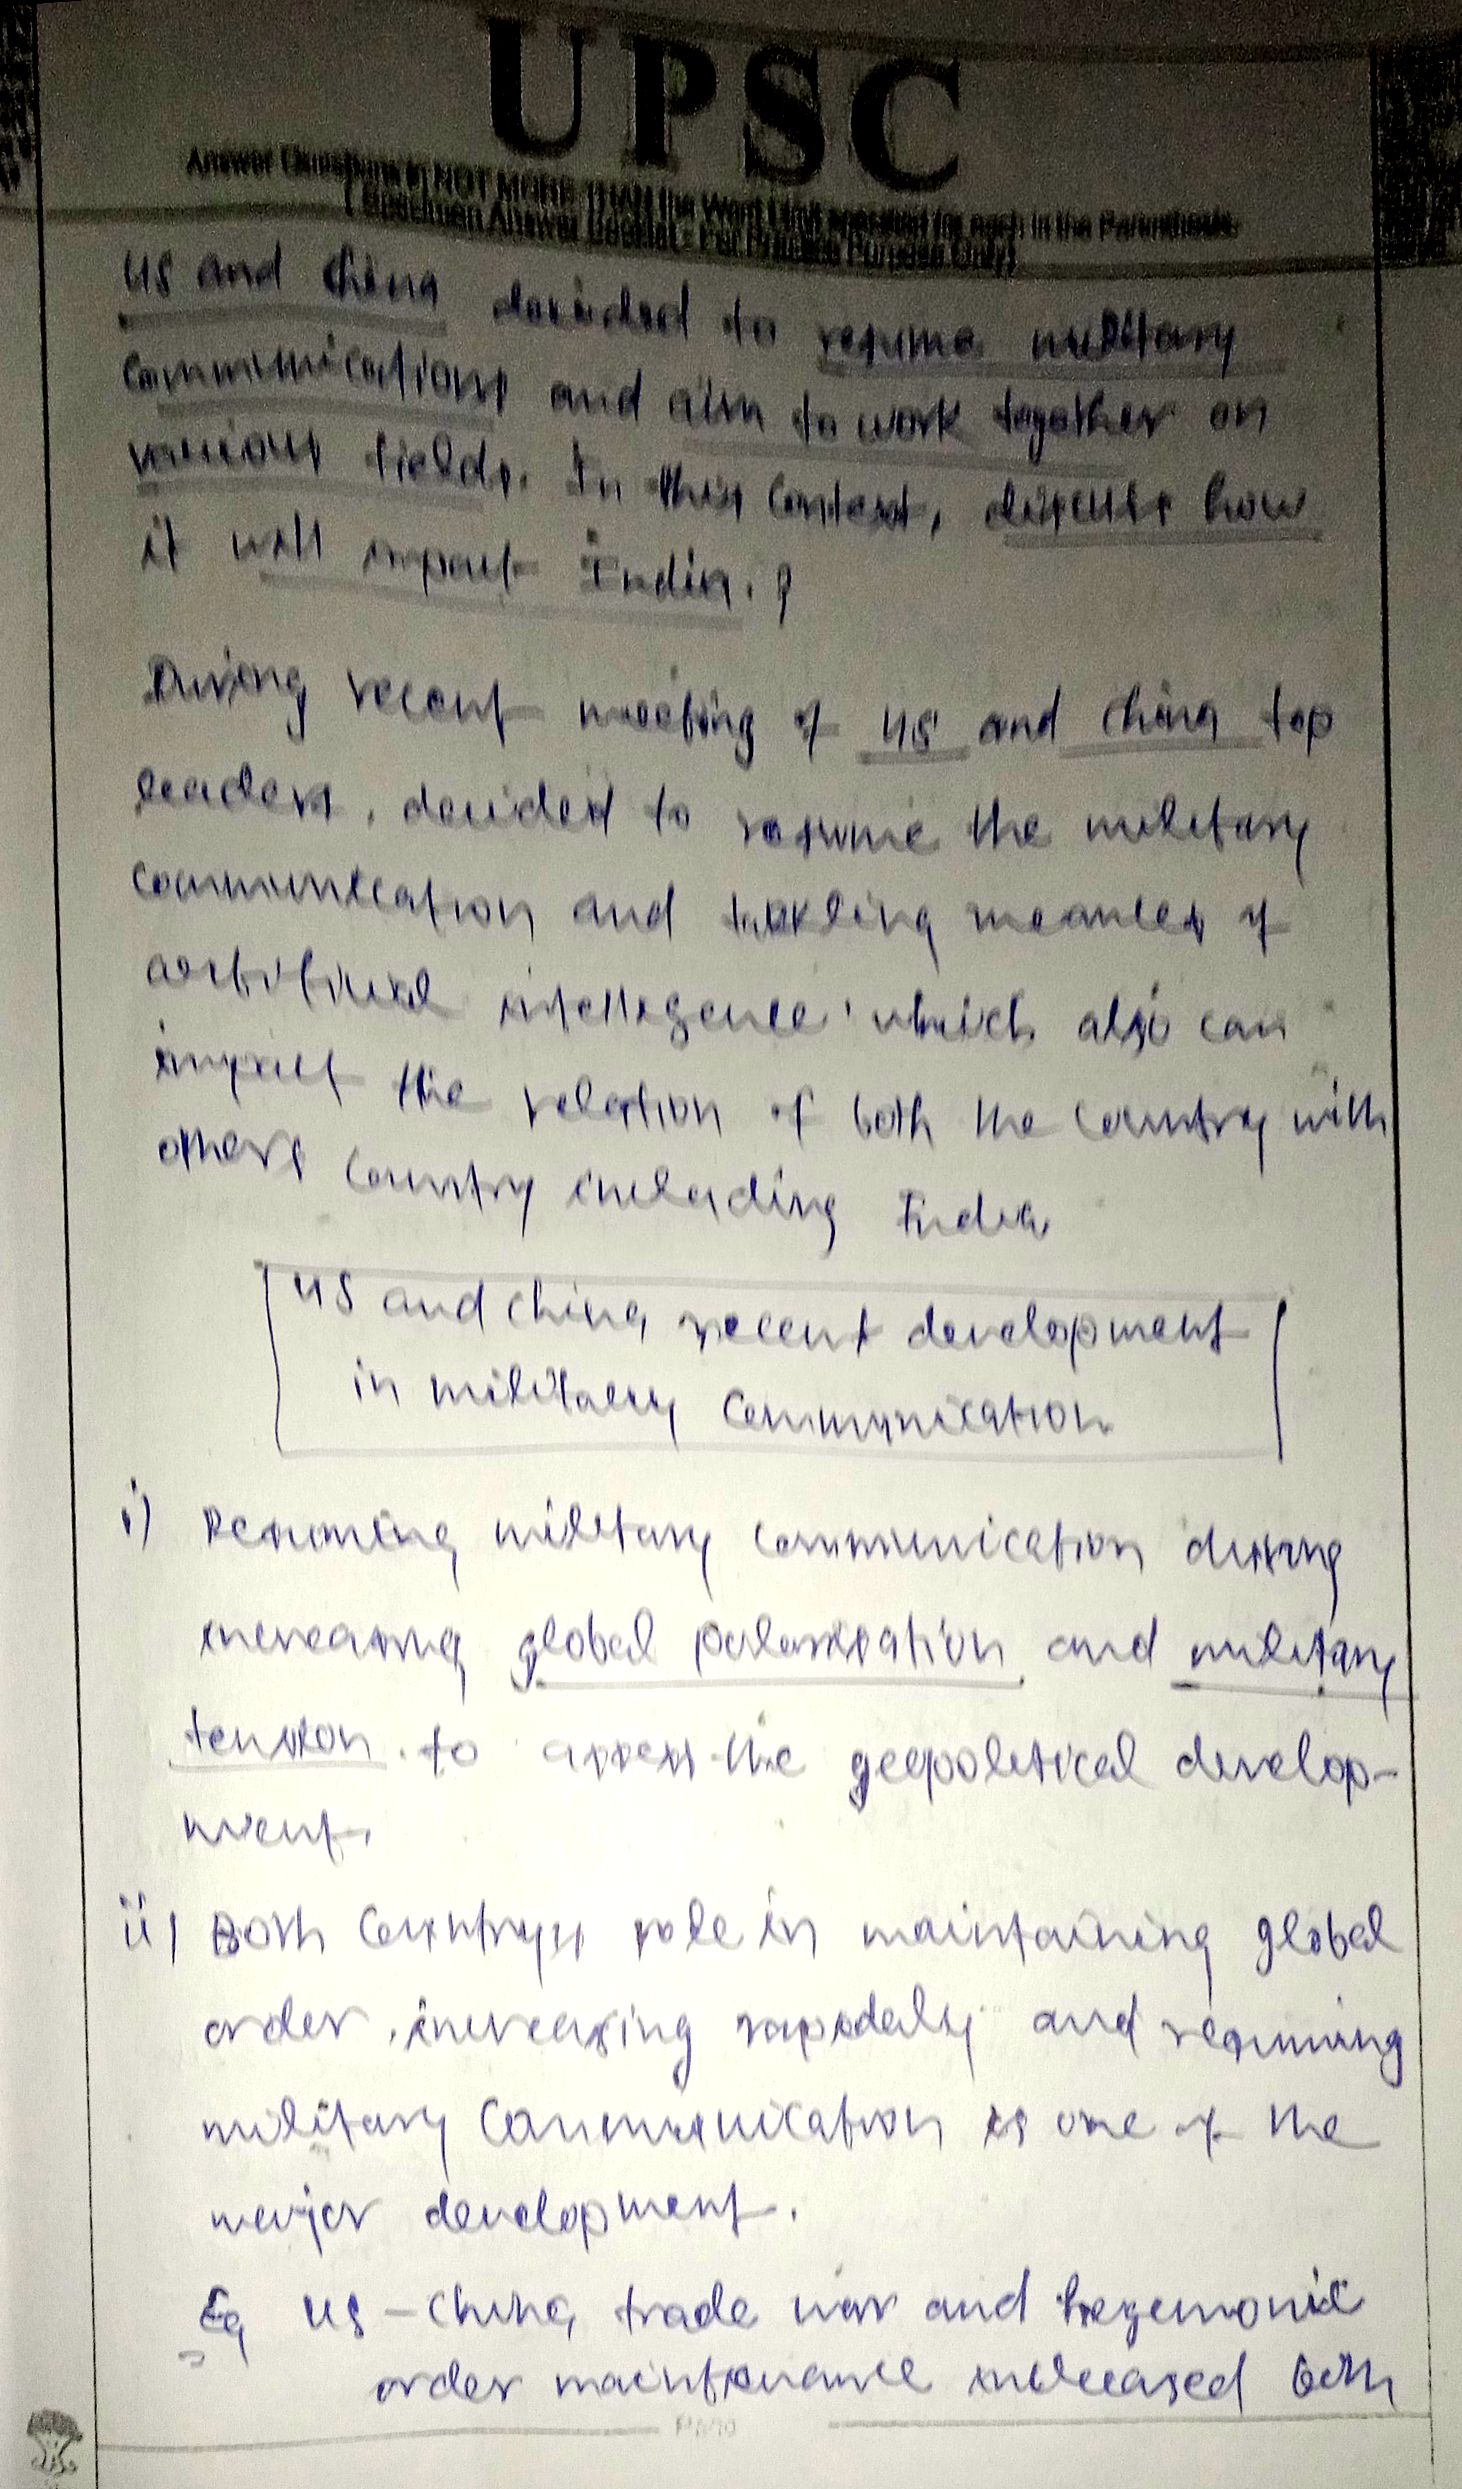 UPSC
Answer Questions in NOT MORE THAN the Word Limit specified for each in the Parenthesis.
( Specimen Answer Booklet - For Practice Purpose Only)
US and China decided to resume military
communications and aim to work together on
various fields. In this context, discuss how
it will impact India. ?
During recent meeting of US and China top
leaders, decided to resume the military
communication and meances of
artificial intellegence which also can
impact the relation of both the country with
others country including India
US and China recent development
in military communication
i) Resuming military communication during
increasing global polarisation and military
tension. to assess the geopolitical develop-
ment.
ii) Both Countrys role in maintaining global
order, increasing rapidaly and resuming
military communication is one of the
major development.
Eg US - China trade war and hegemonic
order maintenance both